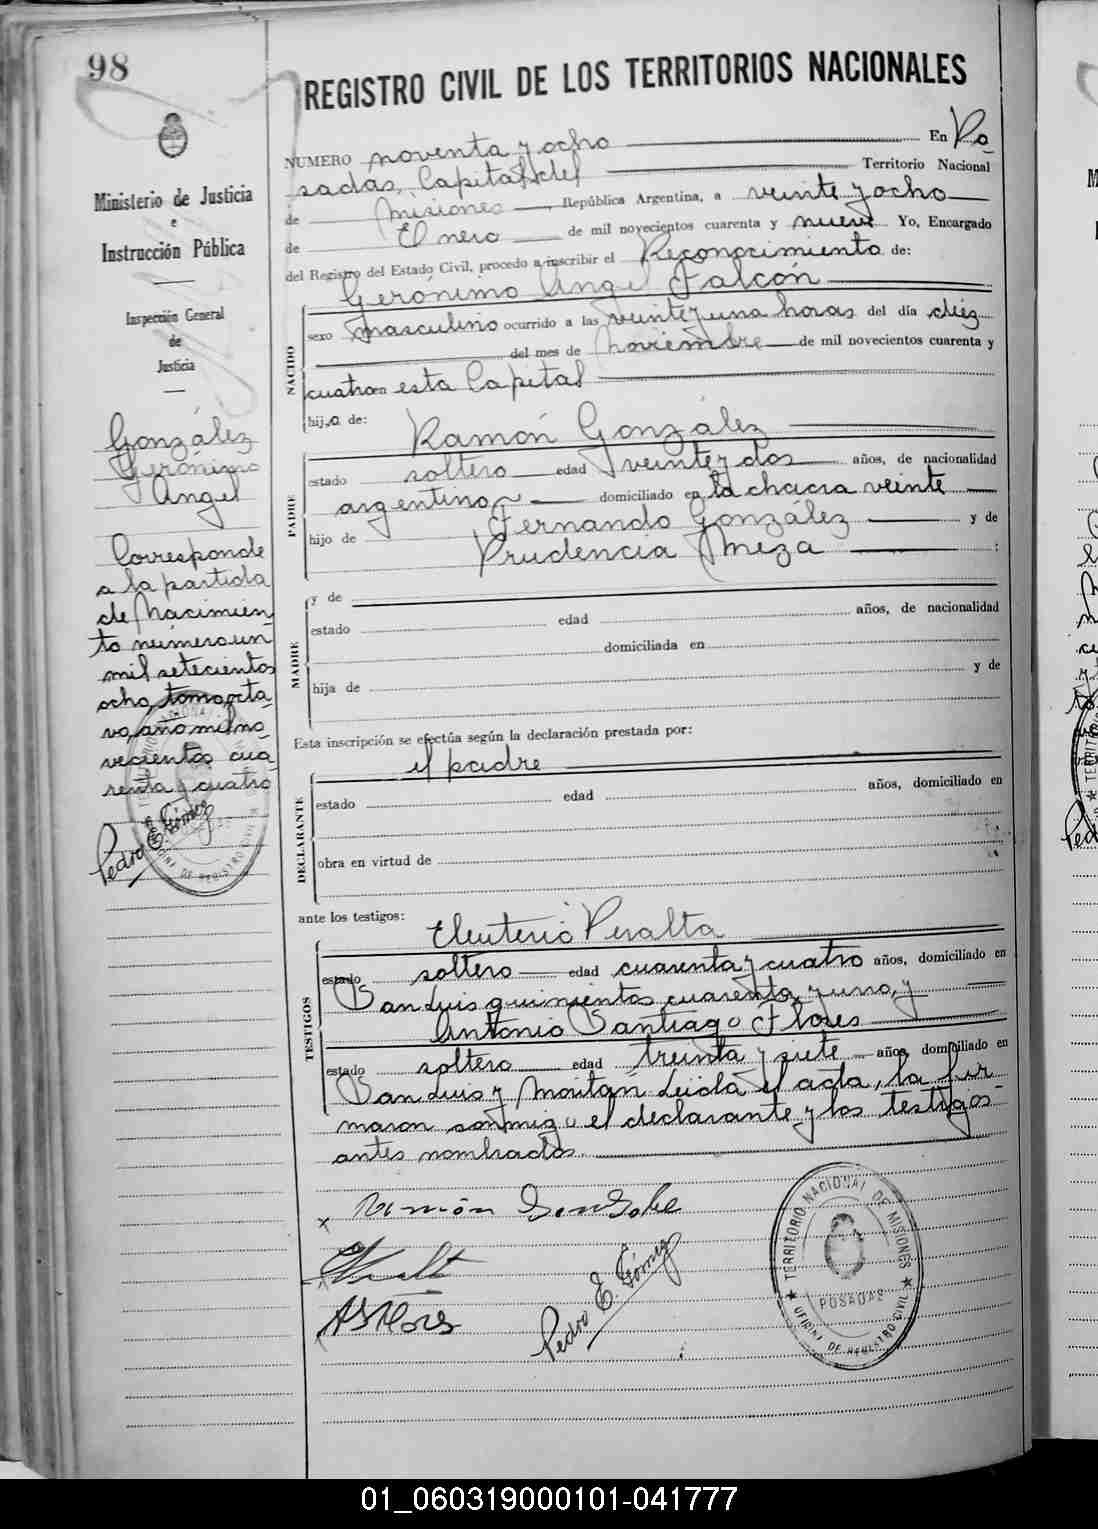 98
REGISTRO CIVIL DE LOS TERRITORIOS NACIONALES
Ministerio de Justicia
e
Instrucción Pública
Inspección General
de
Justicia
González
Gerónimo
Angel
Corresponde
a la partida
de Nacimien
to número un
mil setecientos
ocho, tomo octa
vo, año mil no
vecientos cua
renta y cuatro
Pedro E. Gómez
NUMERO noventa y ocho En Po-
sadas, Capital del Territorio Nacional
de Misiones, República Argentina, a veinte y ocho
de Enero de mil novecientos cuarenta y nueve Yo, Encargado
del Registro del Estado Civil, procedo a inscribir el Reconocimiento de:
Gerónimo Angel Falcón
NACIDO
sexo masculino ocurrido a las veinte y una horas del día diez
del mes de noviembre de mil novecientos cuarenta y
cuatro en esta Capital
hijo de:
Ramón González
PADRE
estado soltero edad veinte y dos años, de nacionalidad
argentino domiciliado en la chacra veinte
hijo de Fernando González y de
Prudencia Meza :
MADRE
y de
estado edad años, de nacionalidad
domiciliada en
hija de y de
Esta inscripción se efectúa según la declaración prestada por:
el padre
DECLARANTE
estado edad años, domiciliado en
obra en virtud de
ante los testigos:
Eleuterio Peralta
TESTIGOS
estado soltero edad cuarenta y cuatro años, domiciliado en
San Luis quinientos cuarenta y uno, y
Antonio Santiago Flores
estado soltero edad treinta y siete años, domiciliado en
San Luis y Moritan Leída el acta, la fir-
maron conmigo el declarante y los testigos
antes nombrados.
x Ramón Gonsale
Pedro E. Gómez
ASFlores
TERRITORIO NACIONAL DE MISIONES
POSADAS
OFICINA DE REGISTRO CIVIL
01_060319000101-041777